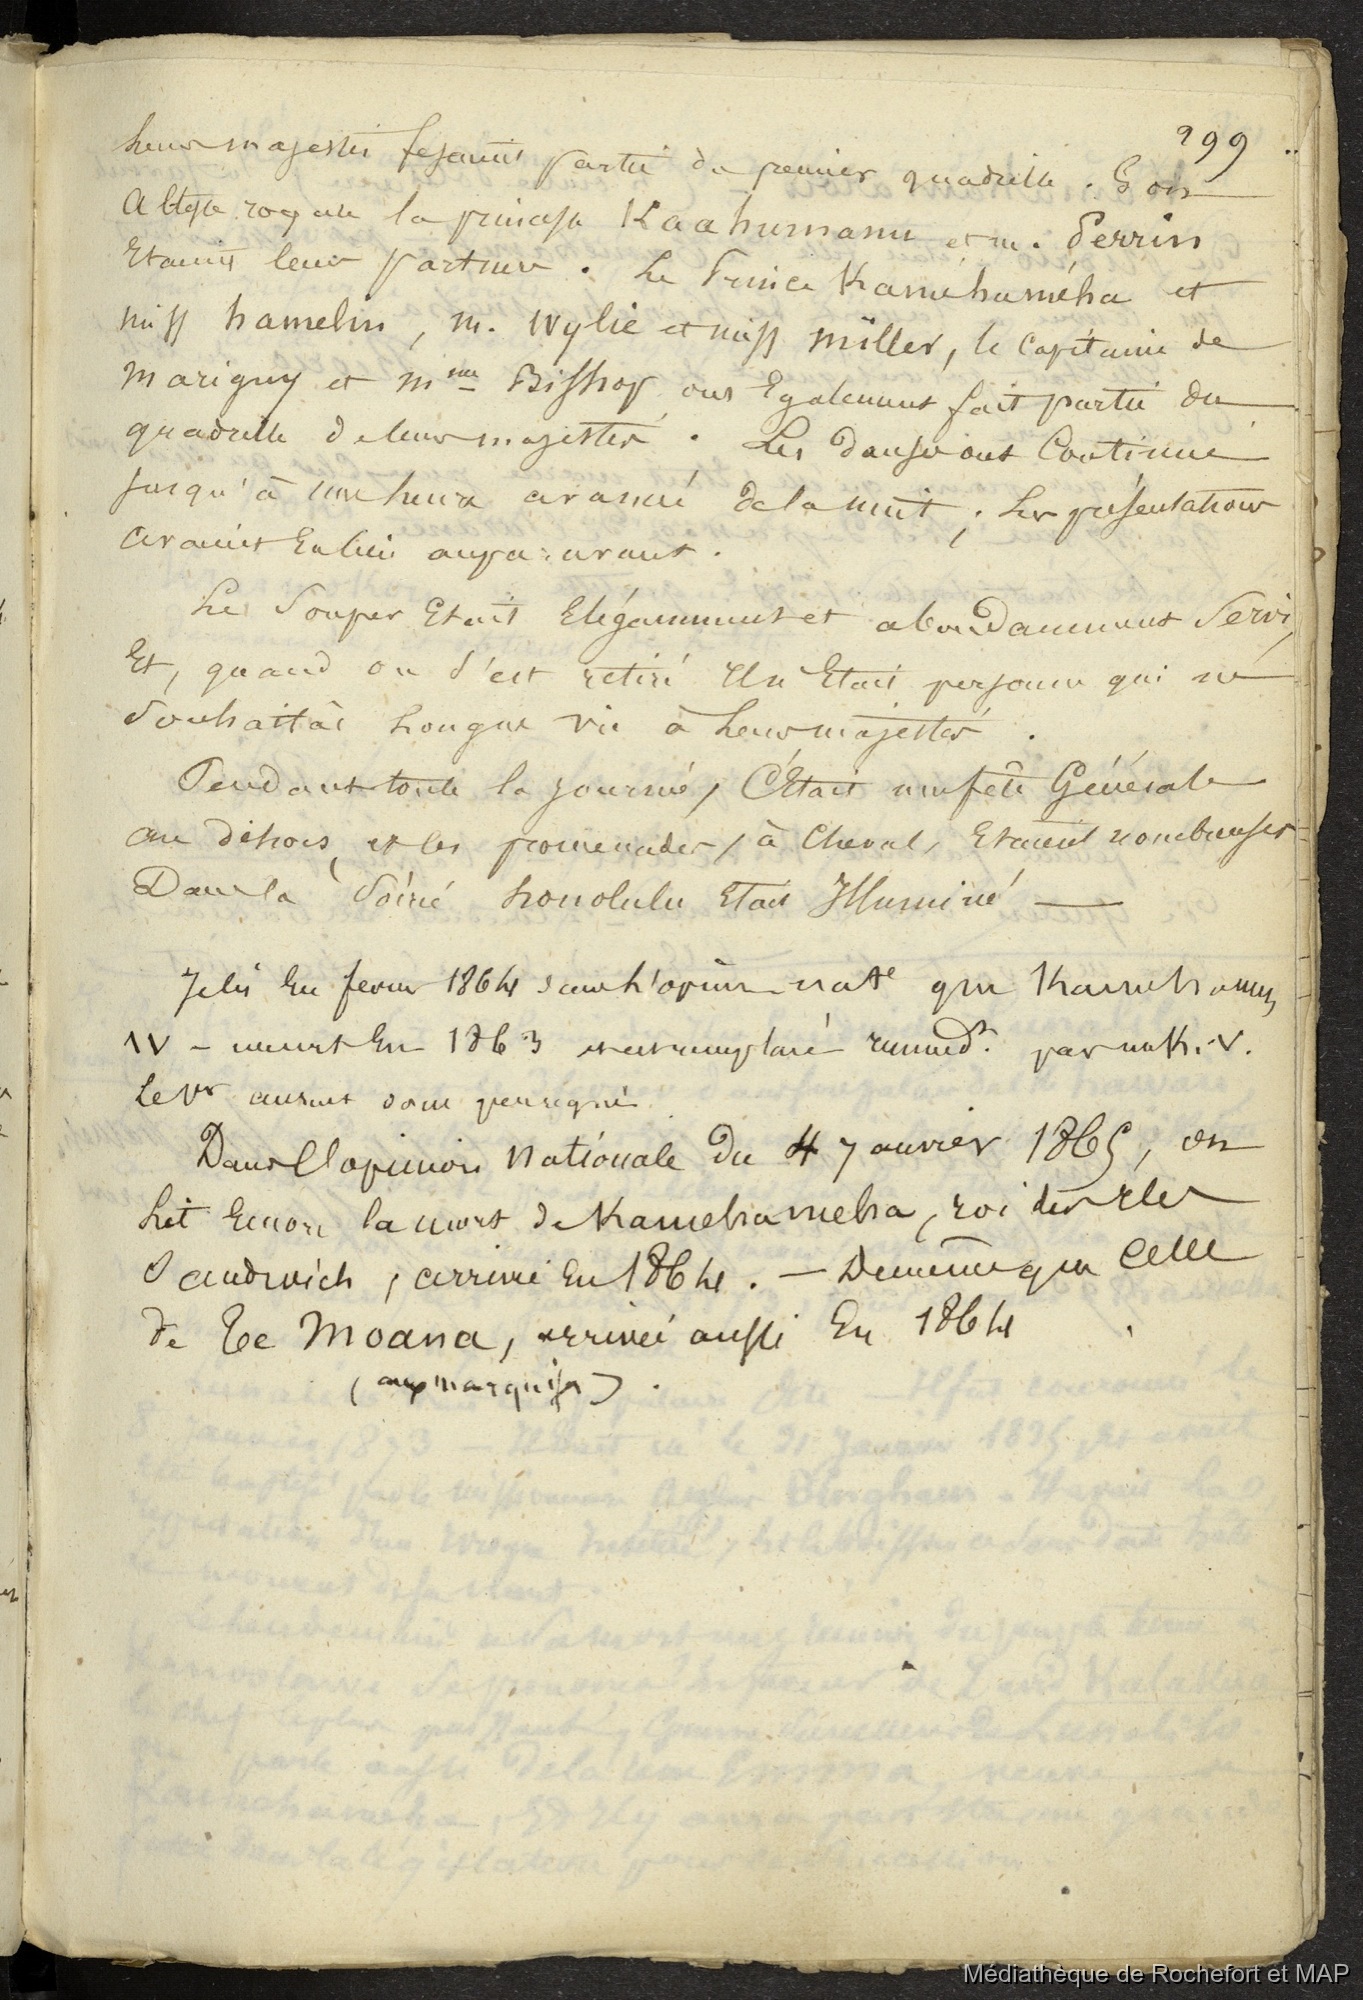 299
Leurs majestés fesaient partie du premier quadrille. Son
Altesse royale la princesse Kaahumanu et m. Perrin
Etaient leurs partners. Le Prince Kaméhaméha et
miss hamelin, m. Wylie et miss miller, le Capitaine de
Marigny et mme Bisshop ont Egalement fait partie du
quadrille de leurs majestés. Les danses ont Continué
jusqu'à une heure avancée de la nuit; Les présentations
avaient Eu lieu auparavant.
Le Souper Etait Elégamment et abondamment Servi,
Et, quand on s'est retiré Il n'Etait personne qui ne
Souhaitât Longue vie à Leurs majestés.
Pendant toute la journée, C'Etait une fête Générale
au dehors, et les promenades, à Cheval, Etaient nombreuses
Dans la Soirée honolulu Etait Illuminé —
Je lis En fevrier 1864 dans l'opinion natle que Kamehameha
IV - meurt En 1863 et est remplacé immedt. par un K. V.
Le Vr aurait donc peu régné
Dans L'opinion Nationale du 4 janvier 1865, on
Lit Encore la mort de Kamehameha, roi des Iles
Sandwich, arrivée En 1864. — De même que Celle
de Te Moana, arrivée aussi En 1864
(aux marquises).
Médiathèque de Rochefort et MAP